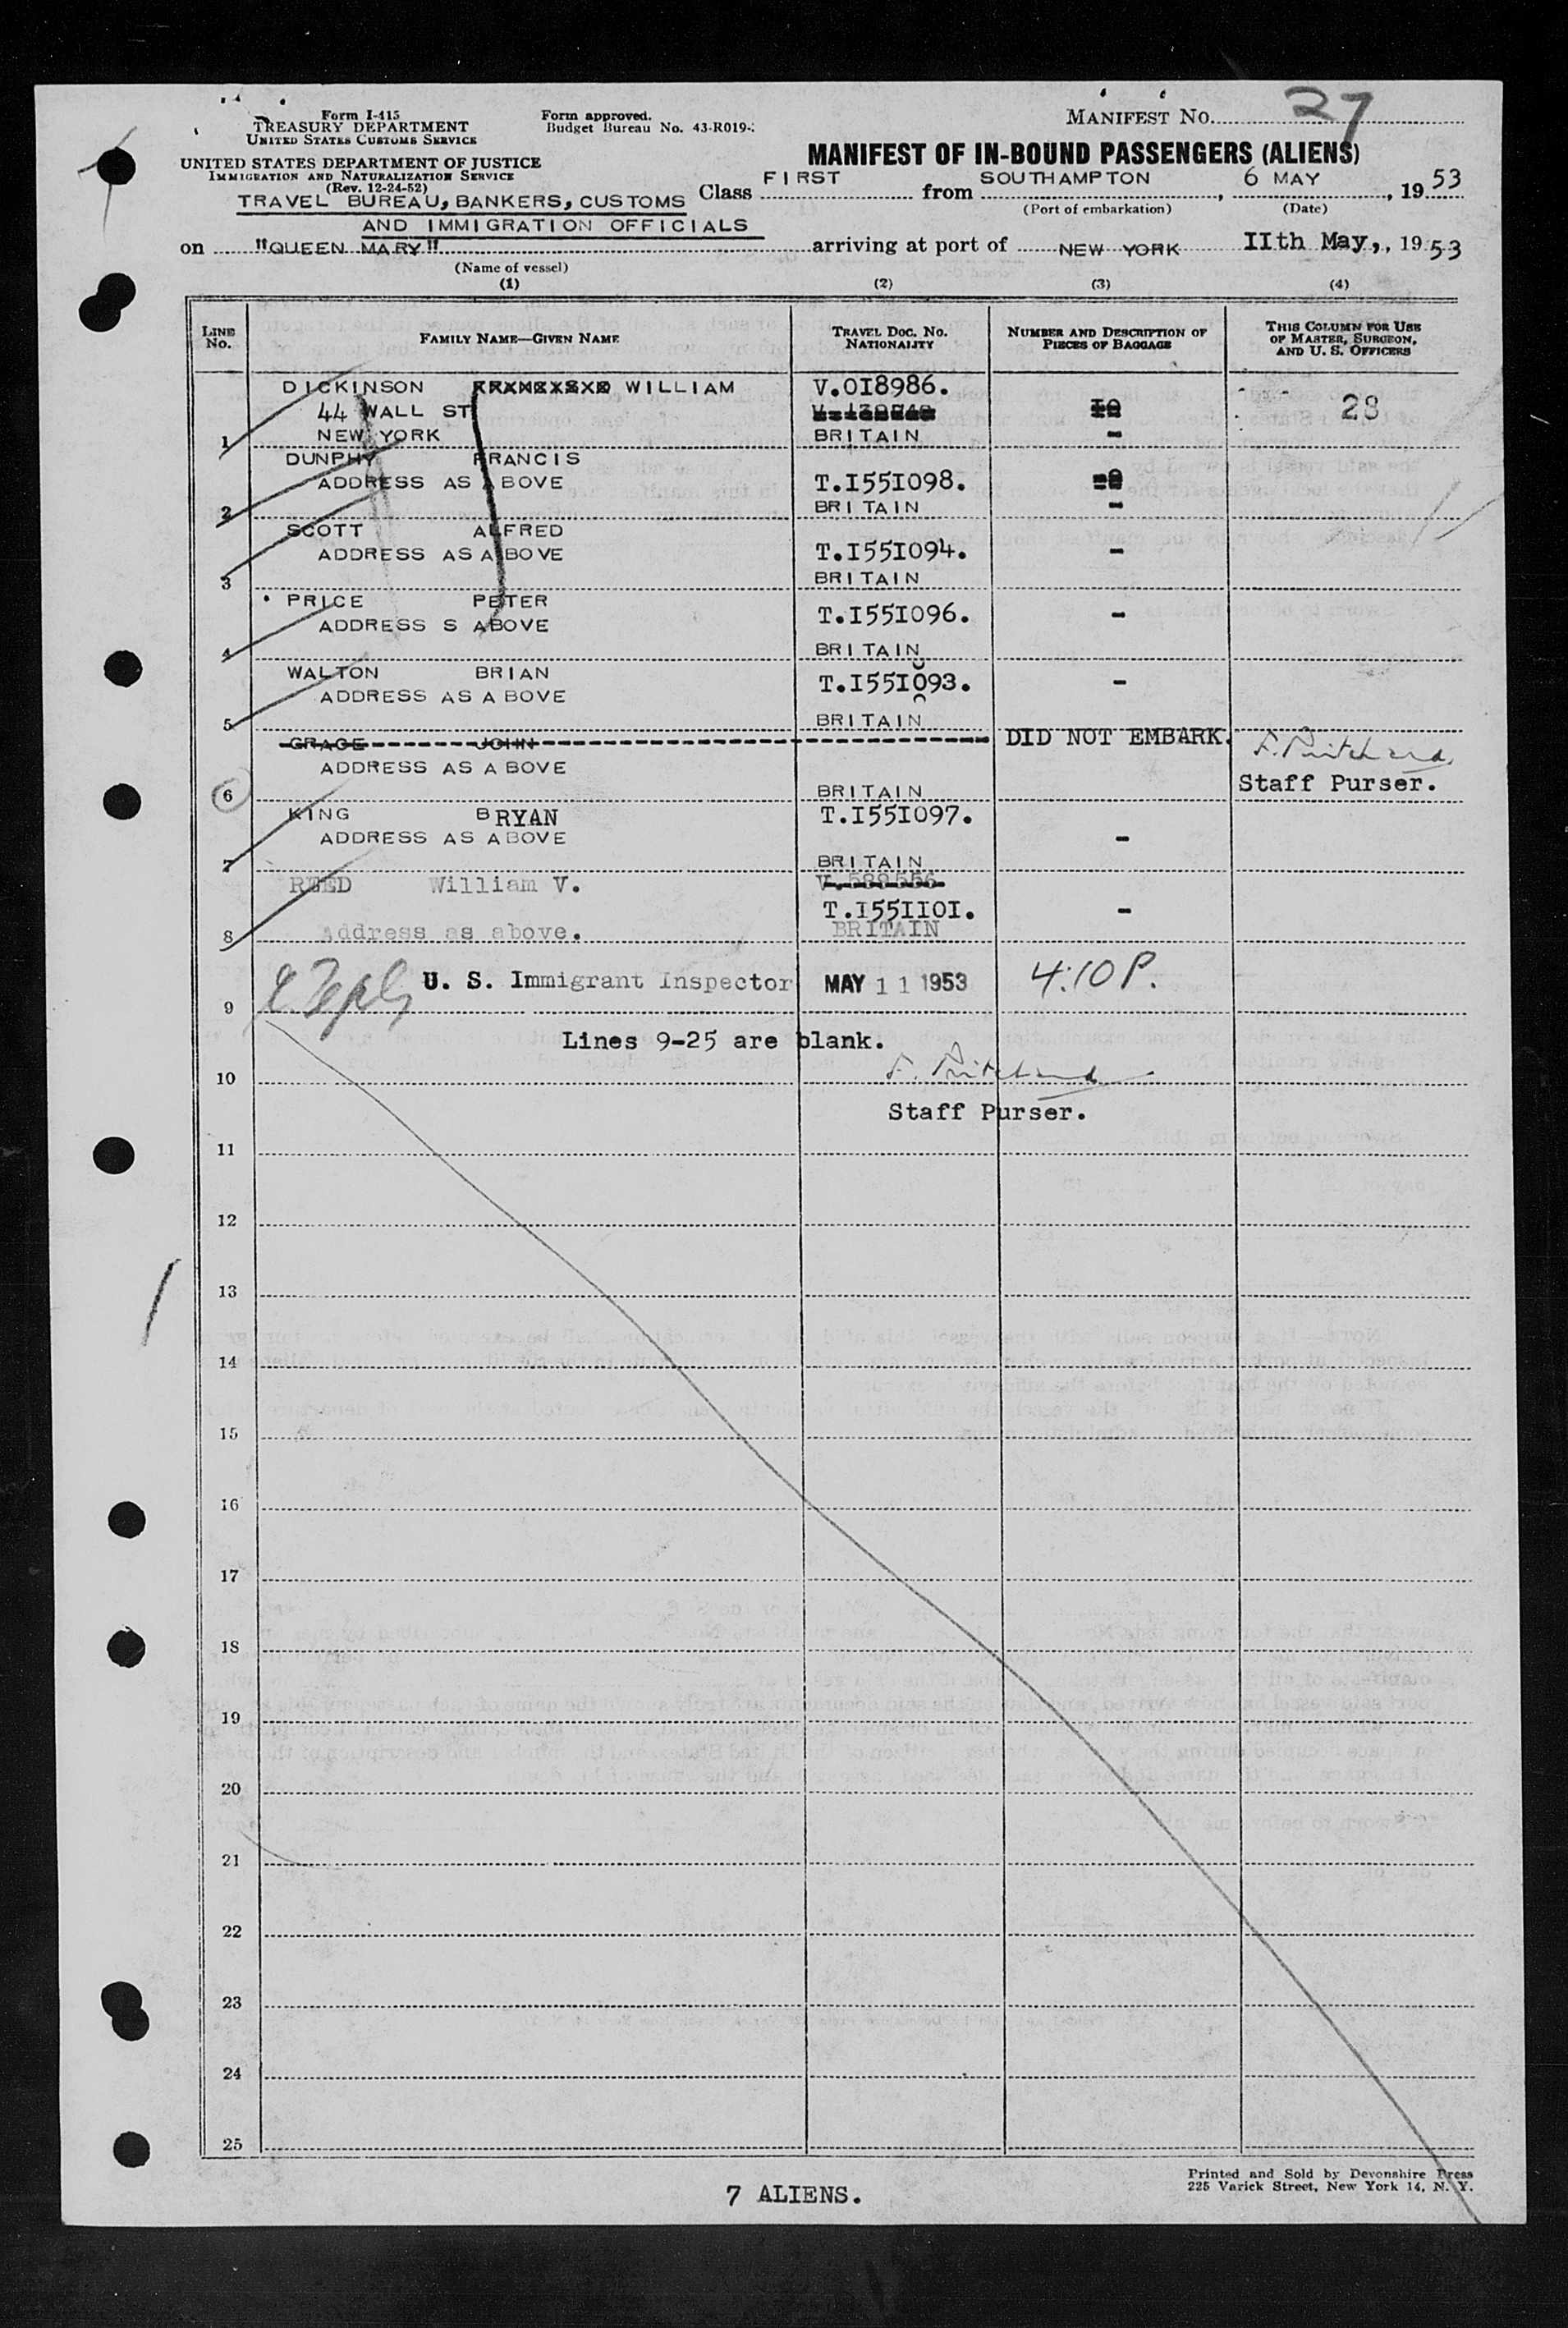 Form I-415
TREASURY DEPARTMENT
UNITED STATES CUSTOMS SERVICE
Form approved.
Budget Bureau No. 43-R019-
MANIFEST NO. 27
UNITED STATES DEPARTMENT OF JUSTICE
IMMIGRATION AND NATURALIZATION SERVICE
(Rev. 12-24-52)
MANIFEST OF IN-BOUND PASSENGERS (ALIENS)
TRAVEL BUREAU, BANKERS, CUSTOMS
AND IMMIGRATION OFFICIALS
Class FIRST from SOUTHAMPTON, 6 MAY, 1953
(Port of embarkation) (Date)
on "QUEEN MARY" arriving at port of NEW YORK IIth May,, 1953
(Name of vessel)
(1) (2) (3) (4)
LINE No. FAMILY NAME—GIVEN NAME TRAVEL DOC. NO. NATIONALITY NUMBER AND DESCRIPTION OF PIECES OF BAGGAGE THIS COLUMN FOR USE OF MASTER, SURGEON, AND U. S. OFFICERS
DICKINSON WILLIAM V.OI8986.
44 WALL ST 28
1 NEW YORK BRITAIN -
DUNPHY FRANCIS
ADDRESS AS ABOVE T.I55I098.
2 BRITAIN -
SCOTT ALFRED
ADDRESS AS ABOVE T.I55I094. -
3 BRITAIN
PRICE PETER
ADDRESS S ABOVE T.I55I096. -
4 BRITAIN
WALTON BRIAN
ADDRESS AS ABOVE T.I55I093. -
5 BRITAIN
GRACE JOHN DID NOT EMBARK. F. Pritchard
ADDRESS AS ABOVE Staff Purser.
6 BRITAIN
KING BRYAN T.I55I097.
ADDRESS AS ABOVE -
7 BRITAIN
REED William V. V.588556
T.I55II0I. -
8 Address as above. BRITAIN
9 U. S. Immigrant Inspector MAY 11 1953 4:10 P.
Lines 9-25 are blank.
10 F. Pritchard
Staff Purser.
11
12
13
14
15
16
17
18
19
20
21
22
23
24
25
7 ALIENS.
Printed and Sold by Devonshire Press
225 Varick Street, New York 14, N. Y.